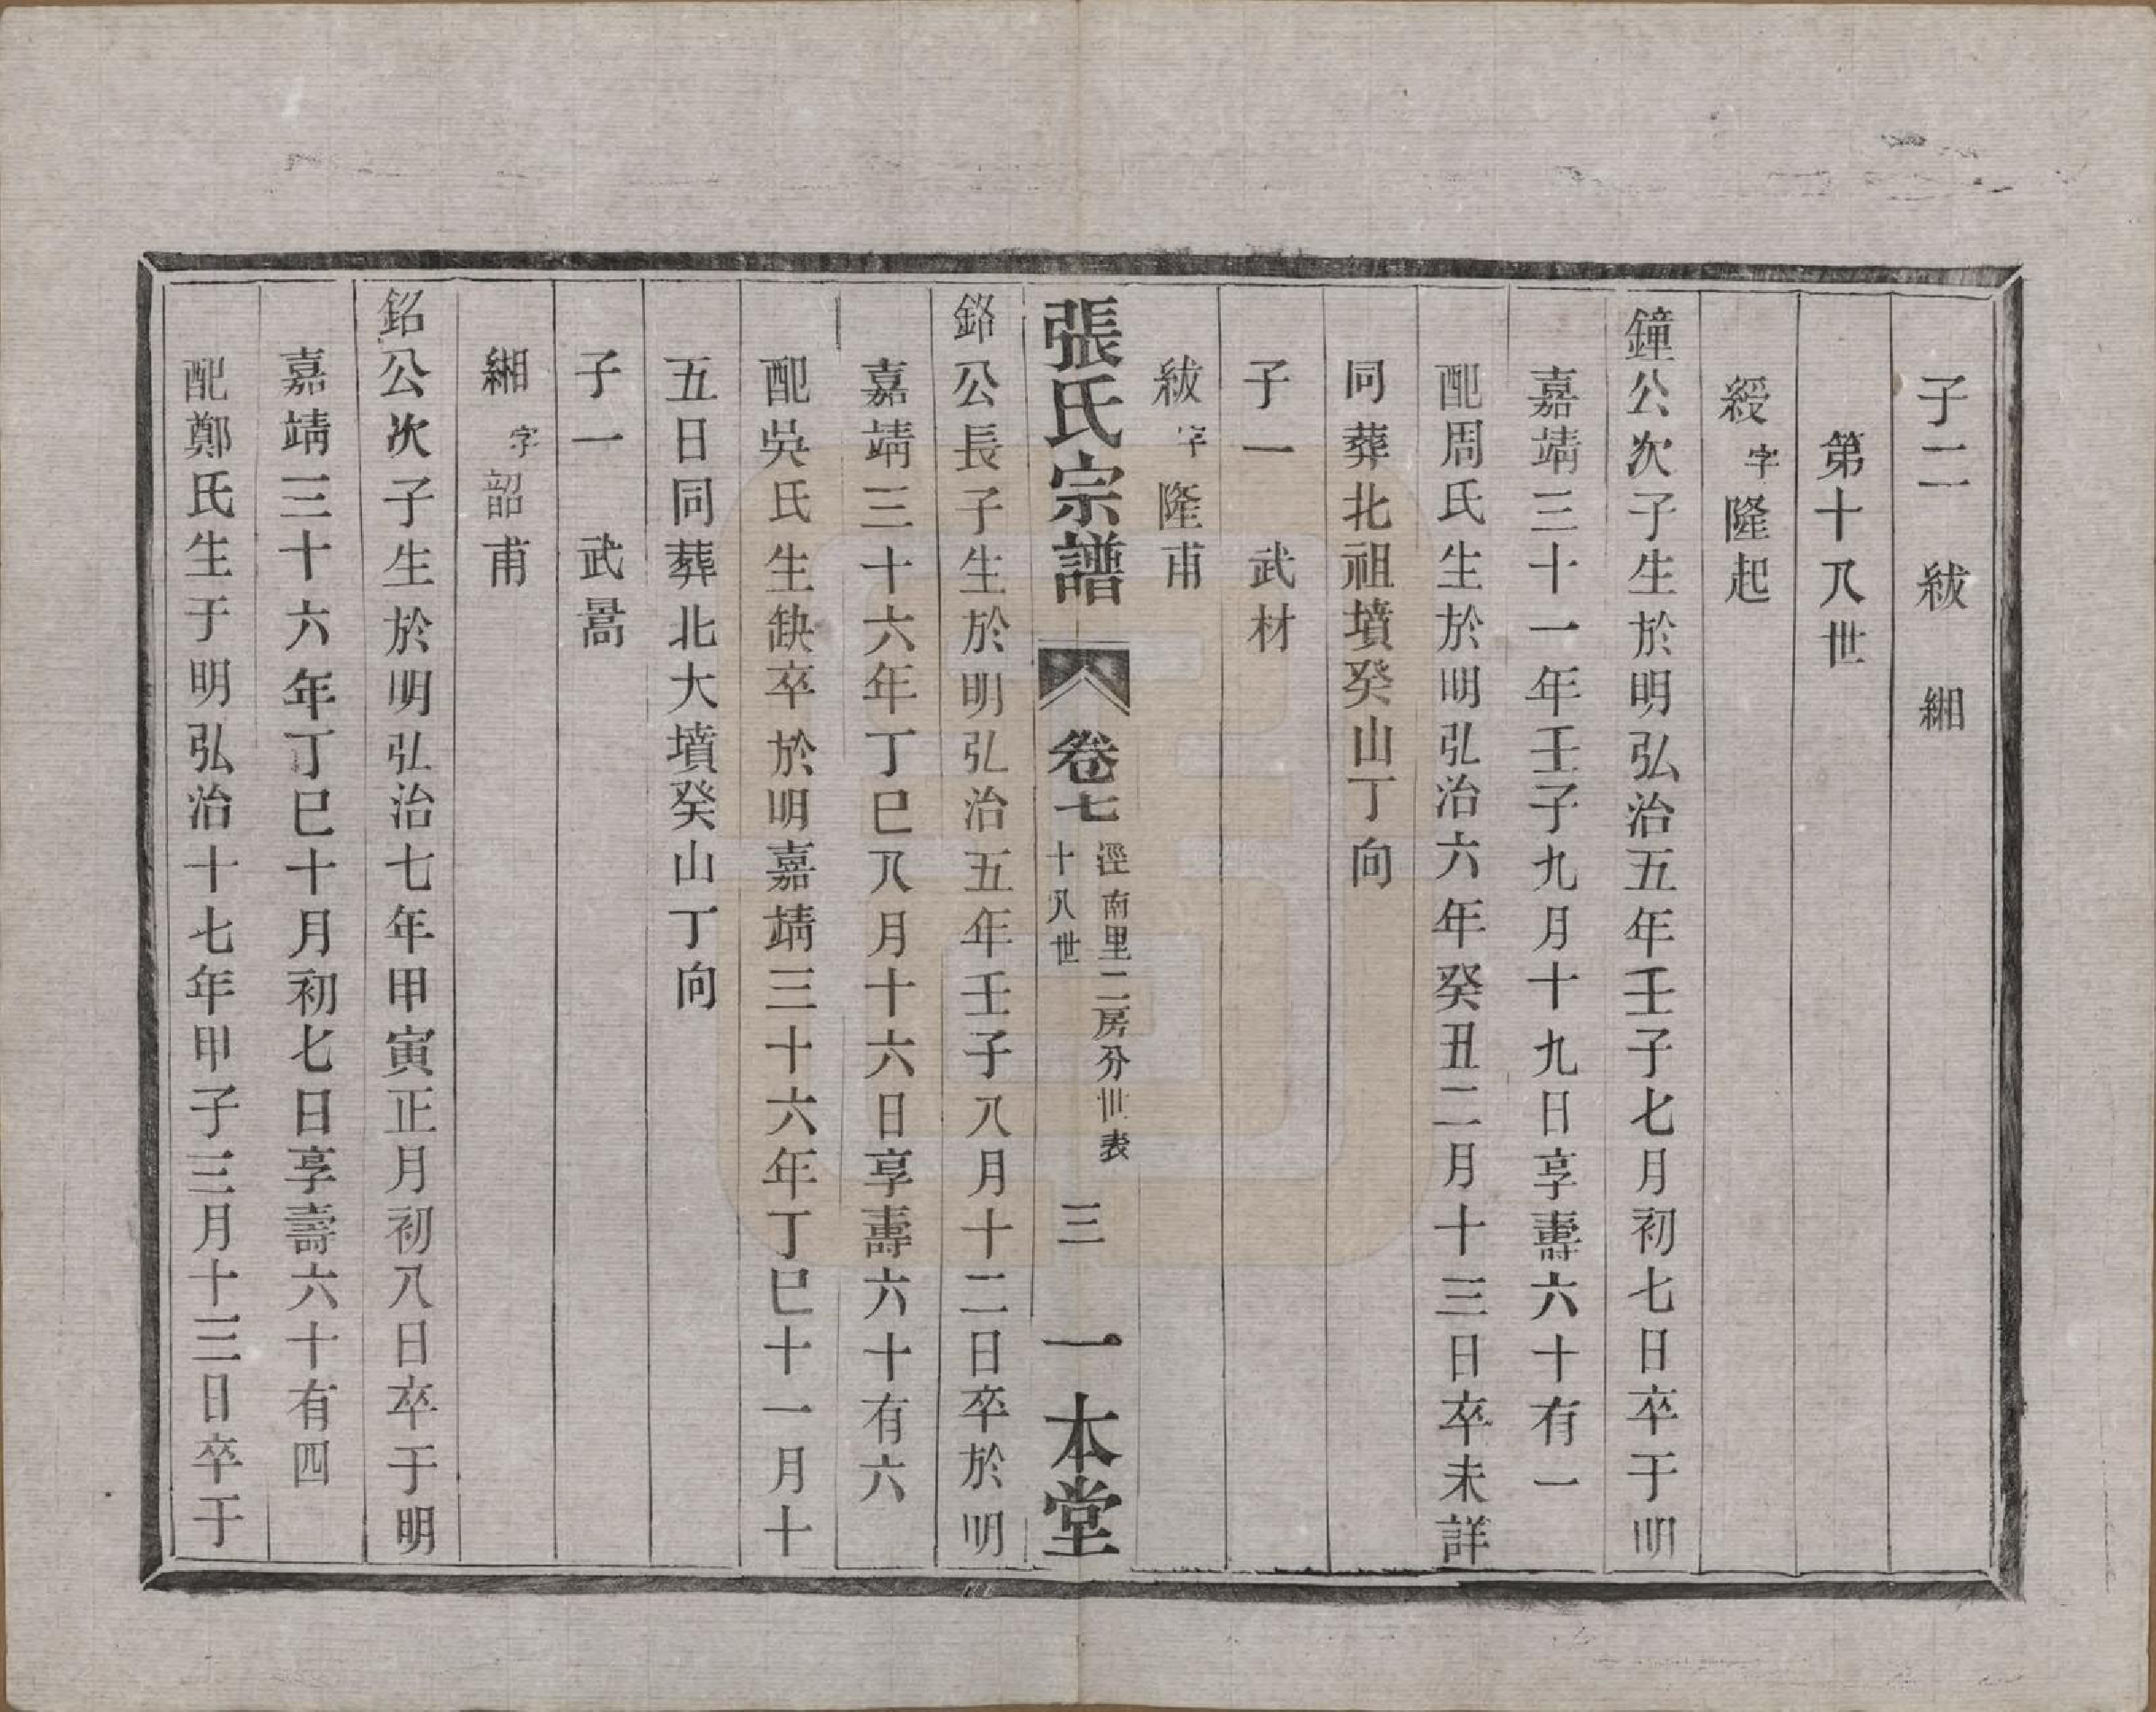 子二 紱 緗
第十八世
綬字隆起
鐘公次子生於明弘治五年壬子七月初七日卒于明
嘉靖三十一年壬子九月十九日享壽六十有一
配周氏生於明弘治六年癸丑二月十三日卒未詳
同葬北祖墳癸山丁向
子一 武材
紱字隆甫
張氏宗譜 卷七 涇南里二房分世表 十八世 三 一本堂
鉻公長子生於明弘治五年壬子八月十二日卒於明
嘉靖三十六年丁巳八月十六日享壽六十有六
配吳氏生缺卒於明嘉靖三十六年丁巳十一月十
五日同葬北大墳癸山丁向
子一 武暠
緗字韶甫
鉻公次子生於明弘治七年甲寅正月初八日卒于明
嘉靖三十六年丁巳十月初七日享壽六十有四
配鄭氏生于明弘治十七年甲子三月十三日卒于